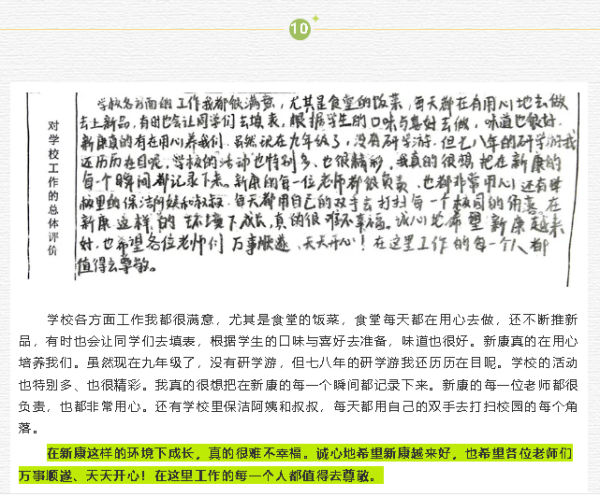 10
对学校工作的总体评价
学校各方面的工作我都很满意，尤其是食堂的饭菜，每天都在有用心地去做
去上新品，有时也会让同学们去填表，根据学生的口味与喜好去做，味道也很好。
新康真的有在用心养我们。虽然现在九年级了，没有研学游，但七八年的研学游我
还历历在目呢。学校的活动也特别多、也很精彩，我真的很想把在新康的
每一个瞬间都记录下来。新康的每一位老师都很负责，也都非常用心还有学
校里的保洁阿姨和叔叔，每天都用自己的双手去打扫每一个校园的角落。在
新康这样的环境下成长，真的很难不幸福。诚心地希望新康越来
好，也希望各位老师们万事顺遂、天天开心！在这里工作的每一个人都
值得去尊敬。
学校各方面工作我都很满意，尤其是食堂的饭菜，食堂每天都在用心去做，还不断推新
品，有时也会让同学们去填表，根据学生的口味与喜好去准备，味道也很好。新康真的在用心
培养我们。虽然现在九年级了，没有研学游，但七八年的研学游我还历历在目呢。学校的活动
也特别多、也很精彩。我真的很想把在新康的每一个瞬间都记录下来。新康的每一位老师都很
负责，也都非常用心。还有学校里保洁阿姨和叔叔，每天都用自己的双手去打扫校园的每个角
落。
在新康这样的环境下成长，真的很难不幸福。诚心地希望新康越来好，也希望各位老师们
万事顺遂、天天开心！在这里工作的每一个人都值得去尊敬。